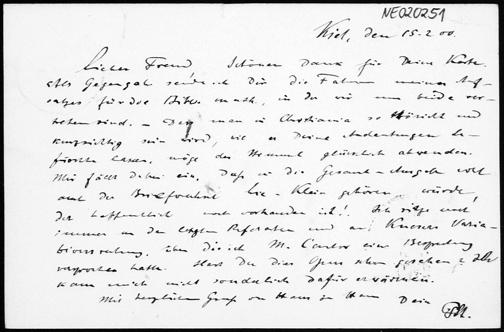 NE020251
Kiel, den 15.2.00.
Lieber Freund! Schönen Dank für Deine Karte.
Als Gegengabe sende ich Dir die Fahnen meines Auf-
satzes für die Bibl. math., in der wir nun beide ver-
treten sind. – Dass man in Christiania so töricht und
kurzsichtig sein wird, wie es Deine Andeutungen be-
fürchten lassen, möge der Himmel glücklich abwenden.
Mir fällt dabei ein, dass in die Gesamt-Ausgabe wohl
auch der Briefwechsel Lie-Klein gehören würde,
der hoffentlich noch vorhanden ist! Ich sitze noch
immer an den letzten Referaten und an Knesers Varia-
tionsrechnung, über die ich M. Cantor eine Besprechung
versprochen hatte. Hast Du das Opus schon gesehen? Ich
kann mich nicht sonderlich dafür erwärmen.
Mit herzlichem Gruß von Haus zu Haus Dein